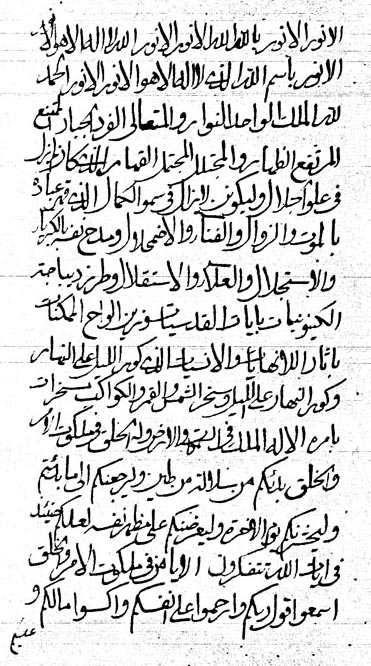 الانور الانور بالله الله الانور الانور الله لا اله الا هو
الانور باسم الله الذي لا اله الا هو الانور الانور الحمد
لله الملك الواحد النوار والمتعالي الفرد الجبار الممتنع
المرتفع الظهار والمجلل المجتمل القهار الذي كان لم يزل
في علو اجلال وليكونن لا يزال في سمو الكمال الذي قهر عباده
بالموت والزوال والفناء والاضمحلال ومدح نفسه بالكبرياء
والاستجلال والعلاء والاستقلال وطرز ديباجة
الكينونيات بايات القدسيات وزين الواح الممكنات
باثار اللانهايات والانسيات الذي كور الليل على النهار
وكور النهار على الليل وسخر الشمس والقمر والكواكب مسخرات
بامره لا اله الا هو الملك في السموات والارض وله الخلق في ملكوت الامر
والخلق بدئكم من سلالة من طين وليرجعنكم الى ما بدئتم
وليحشرنكم يوم القيمة وليعرضنكم على مظهر نفسه لعلكم حينئذ
في ايات الله تتفكرون الا يا من في ملكوت الامر والخلق
اسمعوا قول ربكم وارحموا على انفسكم واكسبوا ما لكم و